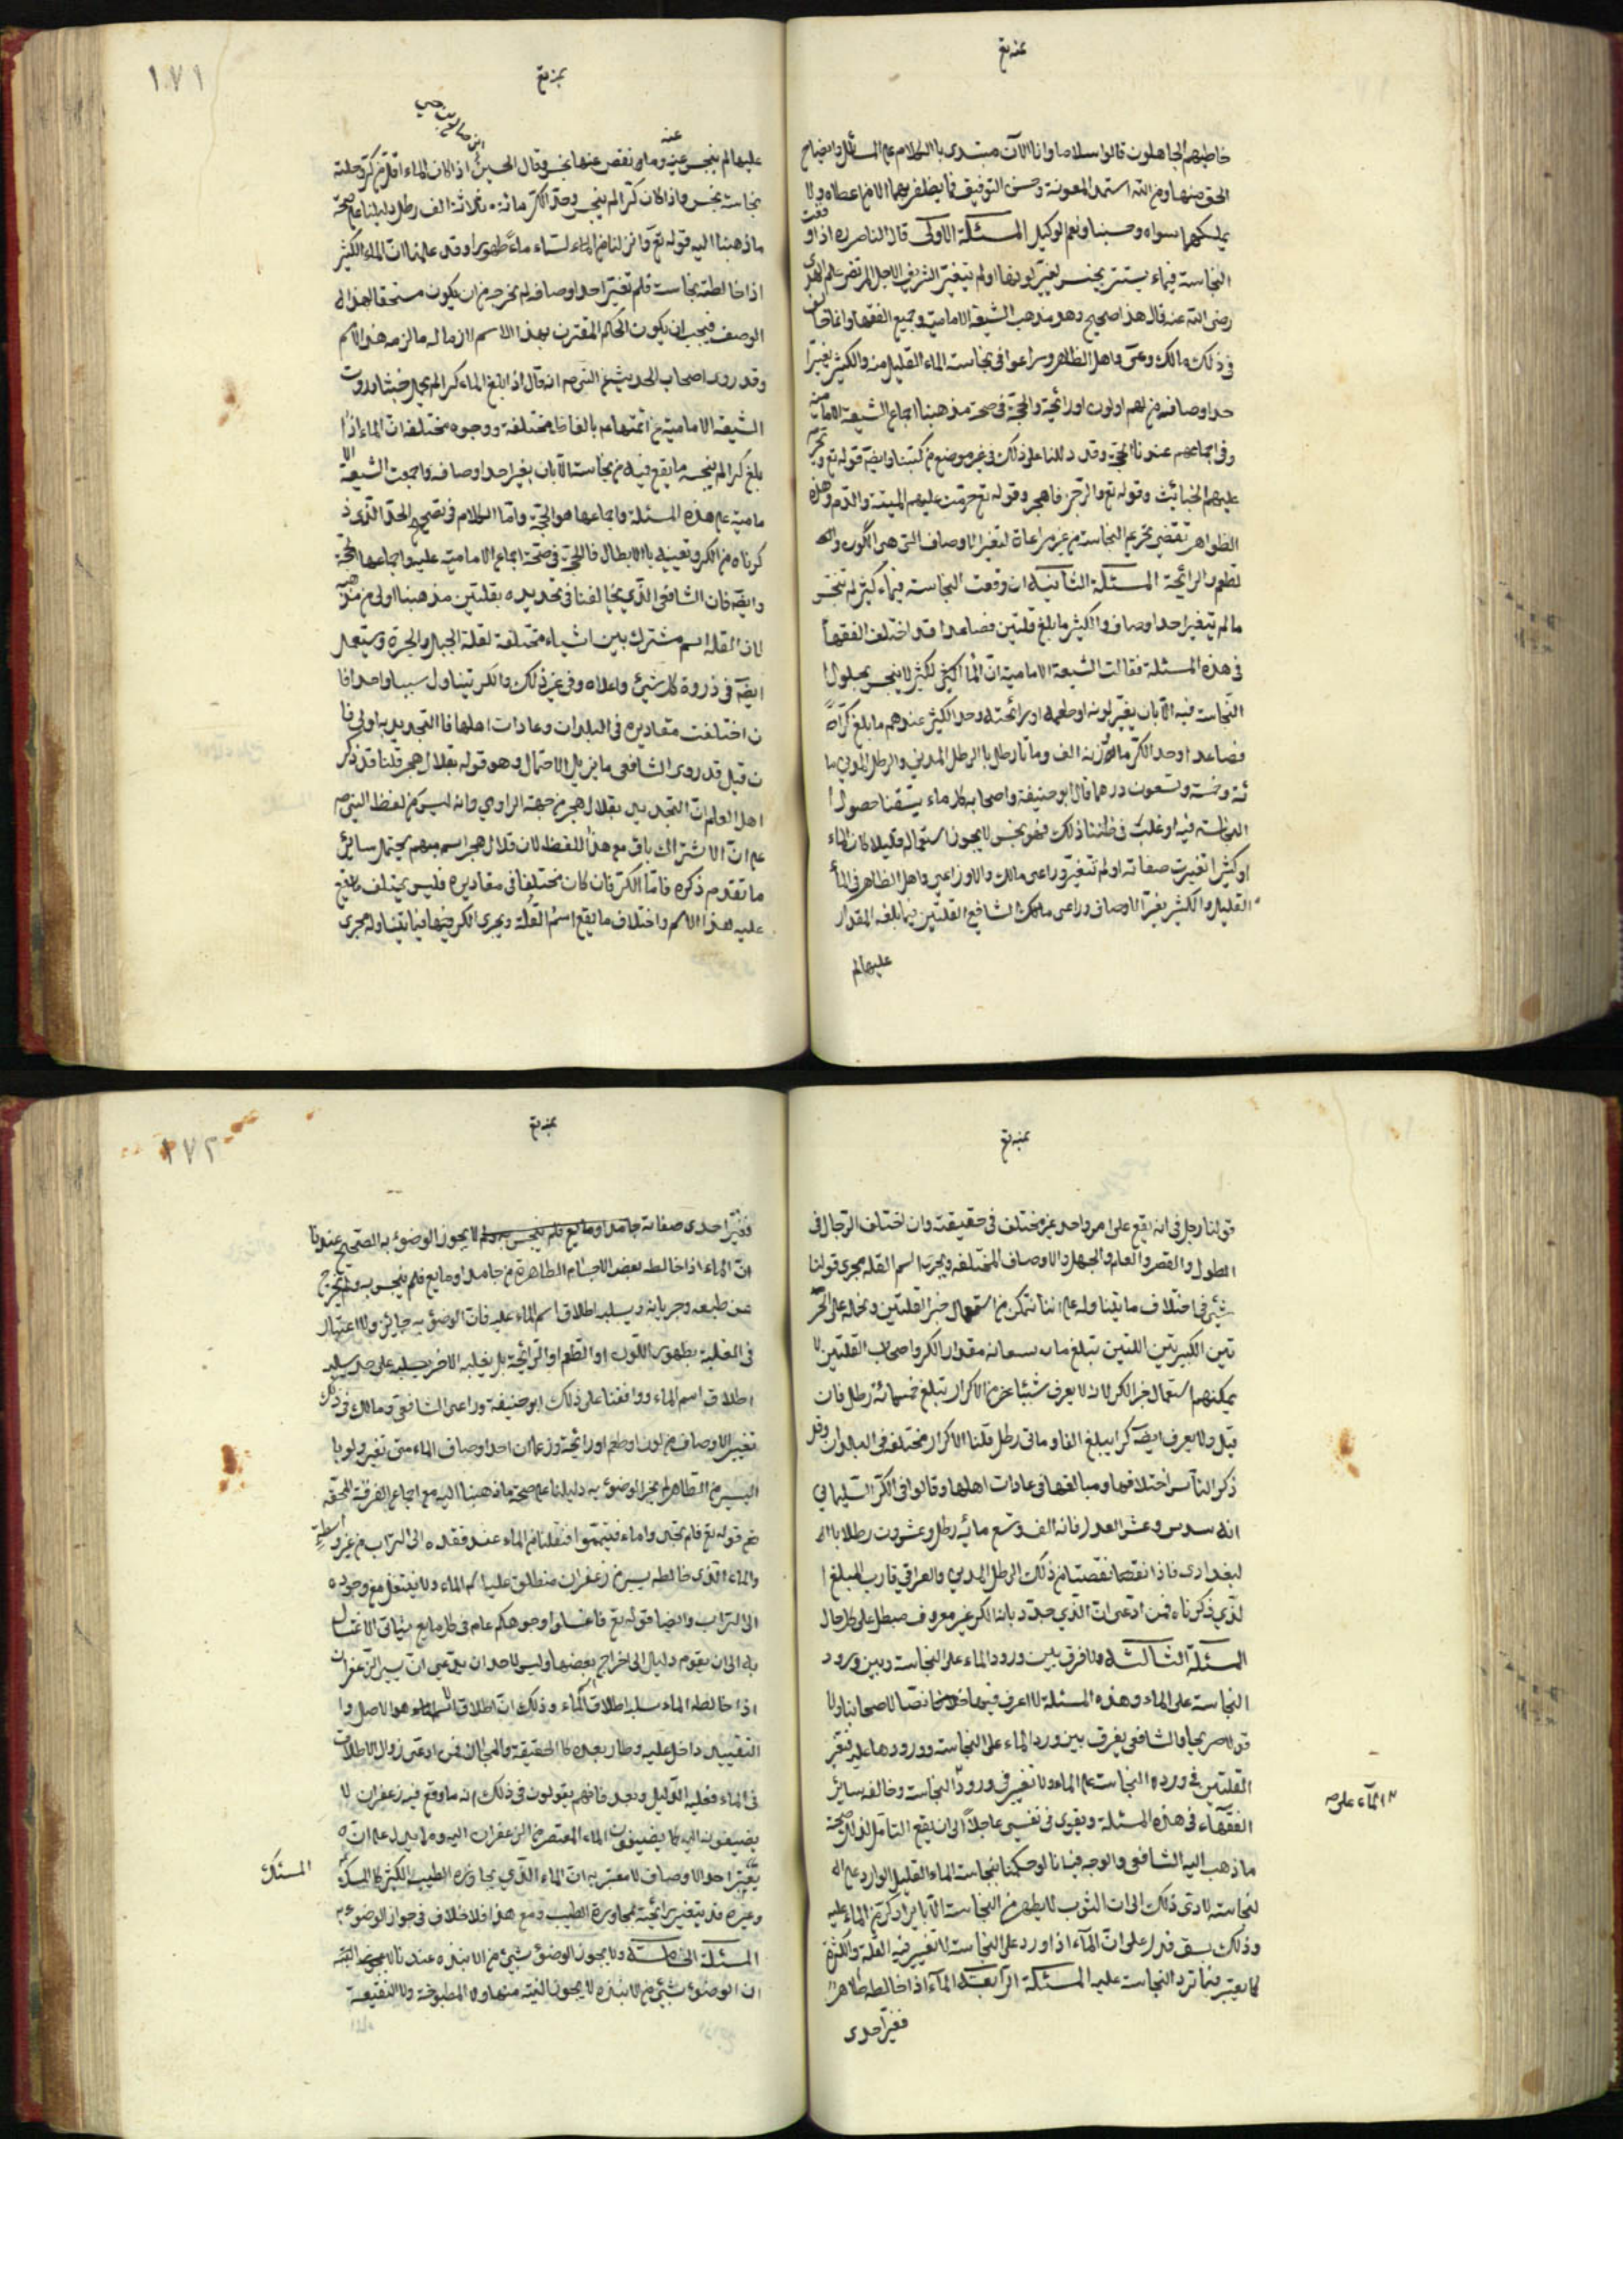 خاطبهم الجاهلون قالوا سلاما وانا الآن مبتدئ بالكلام على المسائل وايضاح
الحق منها ومن الله استمد المعونة وحسن التوفيق فما يظفر بهما الا من اعطاه ولا
يملكهما سواه وحسبنا ونعم الوكيل المسئلة الاولى قال الناصر ره اذا وقعت
النجاسة في ماء يسير نجس تغير بها او لم يتغير الشريف الاجل المرتضى علم الهدى
رضى الله عنه قال هذا صحيح وهو مذهب الشيعة الامامية وجميع الفقهاء وانما خالف
في ذلك مالك واهل الظاهر وراعوا في نجاسة الماء القليل منه والكثير تغير
احد اوصافه من طعم او لون او رائحة والحجة في صحة مذهبنا اجماع الشيعة الامامية
وفي اجماعهم عندنا الحجة وقد دللنا على ذلك في غير موضع من كتبنا وايضا قوله تع ويحرم
عليهم الخبائث وقوله تع والرجز فاهجر وقوله تع حرمت عليكم الميتة والدم وهذه
الظواهر تقتضي تحريم النجاسة من غير مراعاة لتغير الاوصاف التي هي اللون وا
لطعم والرائحة المسئلة الثانية ان وقعت النجاسة في ماء كثير لم ينجس
ما لم يتغير احد اوصافه والكثير ما بلغ قلتين فصاعدا قد اختلف الفقهاء
في هذه المسئلة فقالت الشيعة الامامية ان الماء الكثير لا ينجس بحلول ا
لنجاسة فيه الا بان يغير لونه او طعمه او رائحته وحد الكثير عندهم ما بلغ كرا
فصاعدا وحد الكر ما وزنه الف ومائتا رطل بالرطل المدني والرطل المدني ما
ئة وخمسة وتسعون درهما قال ابو حنيفة واصحابه كل ماء تيقنا حصول ا
لنجاسة فيه او غلب في ظننا ذلك فهو نجس لا يجوز استعماله قليلا كان الماء
او كثيرا تغيرت صفاته او لم تتغير وراعى مالك والاوزاعي واهل الظاهر في الماء
القليل والكثير تغير الاوصاف وراعى الشافعي القلتين فيما بلغه المقدار
عليهما لم
١٧١
عليهما لم ينجس عنده وما نقص عنها نجس وقال الحسن ابن صالح بن حي اذا كان الماء اقل من كر وحلته
نجاسة نجس واذا كان كرا لم ينجس وحد الكر ثلاثة الف رطل دليلنا على صحة
ما ذهبنا اليه قوله تع وانزلنا من السماء ماء طهورا وقد علمنا ان الماء الكثير
اذا خالطته نجاسة فلم تغير احد اوصافه لم يخرجه من ان يكون مستحقا لهذا ا
لوصف فيجب ان يكون الحكم المقترن بهذا الاسم لازما له ما لزمه هذا الاسم
وقد روى اصحاب الحديث عن النبي ص انه قال اذا بلغ الماء كرا لم يحمل خبثا وروت
الشيعة الامامية عن ائمتها ع بالفاظ مختلفة ووجوه مختلفة ان الماء اذا
بلغ كرا لم ينجسه ما يقع فيه من نجاسة الا بان يغير احد اوصافه واجمعت الشيعة الا
مامية على هذه المسئلة واجماعها هو الحجة واما الكلام في تصحيح الحد الذي ذ
كرناه من الكر وتعيينه بالارطال فالحجة في صحته اجماع الامامية عليه واجماعها الحجة
وايضا فان الشافعي الذي يخالفنا في تحديده بقلتين مذهبنا اولى من مذهبه
لان القلة اسم مشترك بين اشياء مختلفة لقلة الجبل والجرة ويستعمل
ايضا في ذروة كل شيئ واعلاه وفي غير ذلك والكر يتناول شيئا واحدا فا
ن اختلفت مقاديره في البلدان وعادات اهلها فالتحديد به اولى فا
ن قيل قد روى الشافعي ما يزيل الاحتمال وهو قوله بقلال هجر قلنا قد ذكر
اهل العلم ان التحديد بقلال هجر من جهة الراوي وانه ليس من لفظ النبي ص
على ان الاشتراك باق مع هذا اللفظ لان قلال هجر اسم مبهم يحتمل سائر
ما تقدم ذكره فاما الكر فان كان مختلفا في مقاديره فليس يختلف ما يقع
عليه هذا الاسم واختلاف ما يقع اسم القلة ويجرى الكر فيها فيما يتناوله مجرى
قولنا رجل في انه يقع على امر واحد غير مختلف في حقيقته وان اختلف الرجال في
الطول والقصر والعلم والجهل والاوصاف المختلفة ويجرى اسم القلة مجرى قولنا
شيئ في اختلاف ما يتناوله على اننا نتمكن من استعمال خبر القلتين ونحمله على الجر
تين الكبيرتين اللتين تبلغ ما يسعانه مقدار الكر واصحاب القلتين لا
يمكنهم استعمال خبر الكر لانه لا يعرف شيئا من الاكرار تبلغ خمسمائة رطل فان
قيل ولا يعرف ايضا كرا يبلغ الفا ومائتي رطل قلنا الاكرار مختلفة في البلدان وقد
ذكر الناس اختلافها ومبالغها في عادات اهلها وقالوا في الكر السليماني
انه سدس وعشر المعدل فانه الف وتسع مائة رطل وعشرون رطلا بال
لبغدادى فاذا نقصنا من ذلك الرطل المدني والعراقي قارب المبلغ ا
لذي ذكرناه فمن ادعى ان الذي حددنا به الكر غير معروف مبطل على كل حال
المسئلة الثالثة ولا فرق بين ورود الماء على النجاسة وبين ورود
النجاسة على الماء وهذه المسئلة لا اعرف فيها نصا لاصحابنا ولا
قولا صريحا والشافعي يفرق بين ورود الماء على النجاسة وورودها عليه فيعتبر
القلتين في ورود النجاسة على الماء ولا يعتبر في ورود النجاسة وخالفه سائر
الماء على ص
الفقهاء في هذه المسئلة ويقوى في نفسي عاجلا الى ان يقع التامل لذلك صحة
ما ذهب اليه الشافعي والوجه فيه انا لو حكمنا بنجاسة الماء القليل الوارد على ال
نجاسة لادى ذلك الى ان الثوب لا يطهر من النجاسة الا بايراد كر من الماء عليه
وذلك يشق فدل على ان الماء اذا ورد على النجاسة لا يعتبر فيه القلة والكثرة
كما يعتبر فيما ترد النجاسة عليه المسئلة الرابعة الماء اذا خالطه طاهر
فغير احدى
١٧٢
فغير احدى صفاته جامد او مايع فلم ينجس به لا يجوز الوضوء به الصحيح عندنا
ان الماء اذا خالطه بعض الاجسام الطاهرة من جامد او مايع فلم ينجس به ولم يخرج
عن طبعه وجريانه ويسلبه اطلاق اسم الماء عليه فان الوضوء به جائز ولا اعتبار
في الغلبة بظهور اللون او الطعم او الرائحة بل بغلبة الاجزاء على حد يسلبه
اطلاق اسم الماء ووافقنا على ذلك ابو حنيفة وراعى الشافعي ومالك في ذلك
تغيير الاوصاف من لون او طعم او رائحة وزعما ان احد اوصاف الماء متى تغير ولو با
ليسير من الطاهر لم يجز الوضوء به دليلنا على صحة ما ذهبنا اليه مع اجماع الفرقة المحقة
قوله تع فلم تجدوا ماء فتيمموا فنقلنا من الماء عند فقده الى التراب من غير واسطة
والماء الذي خالطه يسير من زعفران منطلق عليه اسم الماء ولا ينتقل مع وجوده
الى التراب وايضا قوله تع فاغسلوا وجوهكم عام في كل مايع يتاتى الاغتسال
به الى ان يقوم دليل الى اخراج بعضها وليس لاحد ان يدعى ان يسير الزعفران
اذا خالطه الماء سلبه اطلاق الماء وذلك ان اطلاق الاسم هو الاصل وا
لتقييد داخل عليه وطار بعده كالحقيقة والمجاز فمن ادعى زوال الاطلاق
في الماء فعليه الدليل وبعد فانهم يقولون في ذلك ان ما وقع فيه زعفران لا
يضيفون اليه كما يضيفون الماء المعتصر من الزعفران اليه ومما يدل على ان ه
تغير احد الاوصاف لا معتبر به ان الماء الذي يجاوره الطيب الكثير كالمسك
المسئلة
وغيره قد يتغير رائحته بمجاورة الطيب ومع هذا فلا خلاف في جواز الوضوء به
المسئلة الخامسة ولا يجوز الوضوء بشيئ من الانبذة عندنا
ان الوضوء بشيئ من الانبذة لا يجوز النية منها ولا المطبوخة ولا النقيعة